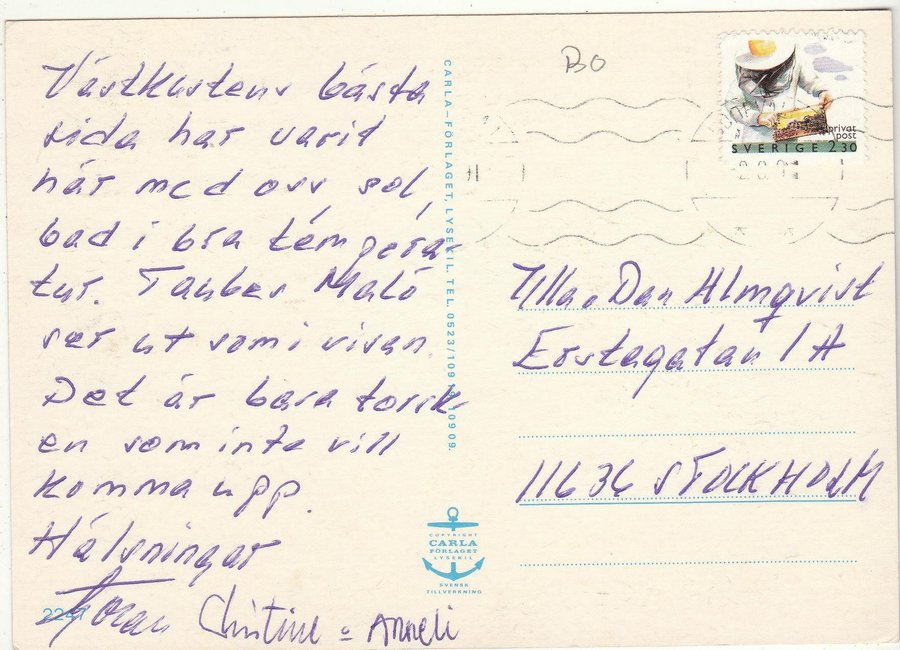 Västkustens bästa
sida har varit
här med oss sol,
bad i bra tempera-
tur. Taubes Malö
ser ut som i visan.
Det är bara torsk-
en som inte vill
komma upp.
Hälsningar
Göran Christine o Anneli
2247
CARLA-FÖRLAGET, LYSEKIL TEL. 0523/109
09 09.
COPYRIGHT
CARLA
FÖRLAGET
LYSEKIL
SVENSK
TILLVERKNING
BO
privat
post
SVERIGE 2.30
Ulla o Dan Almqvist
Erstagatan 1A
11636 STOCKHOLM